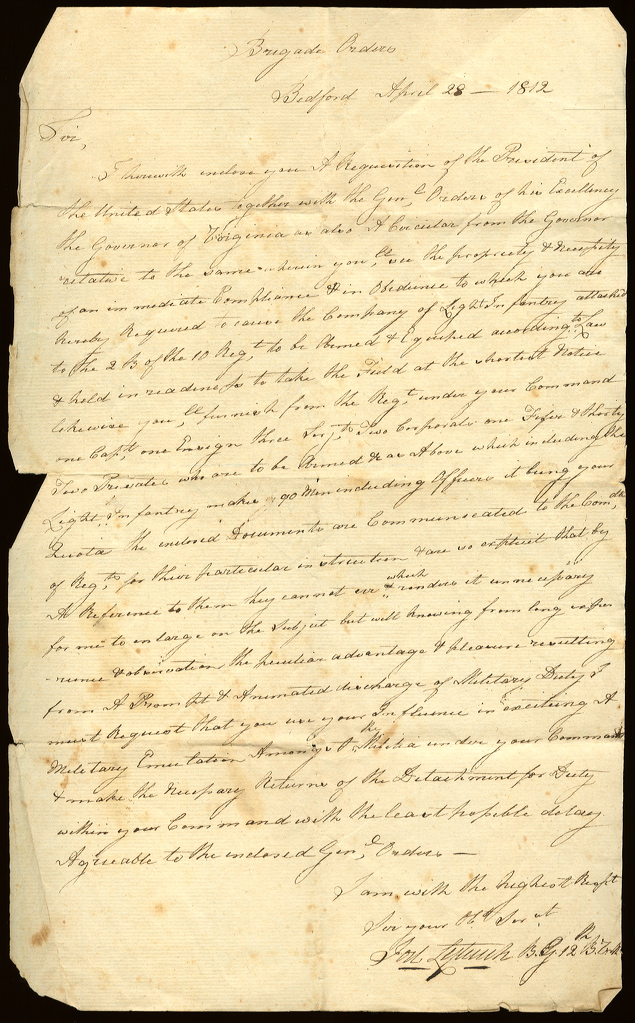 Brigade Orders
Bedford April 28 — 1812
Sir,
I herewith inclose you A Requisition of the President of
the United States together with the Genl. Orders of his Excellency
the Governor of Virginia as also A Circular from the Governor
relative to the same wherein you'll see the propriety & Necessity
of an immediate Compliance & in Obedience to which you are
hereby Required to cause the Company of Light Infantry attached
to the 2 B of the 10 Regt. to be Armed & Equiped according to Law
& held in readiness to take the Field at the shortest Notice
likewise you'll furnish from the Regt. under your Command
one Capt. one Ensign three Serjts. Two Corporals one Fifer & thirty
Two Privates who are to be Armed &c as Above which including the
Light Infantry make 90 Men including Officers it being your
Quota the inclosed Documents are Communicated to the Comdts.
of Regts. for their particular instruction & are so explicit that by
A Reference to them they cannot err & which renders it unnecessary
for me to enlarge on the subject but well knowing from long expe
-rience & observation the peculiar advantage & pleasure resulting
from A Prompt & Animated discharge of Military Duty I
must Request that you use your Influence in exciting A
Military Emulation Amongst the Militia under your Command
& make the Necessary Returns of the Detachment for Duty
within your Command with the least possible delay
Agreeable to the inclosed Genl. Orders —
I am with the highest Respt
Sir your Obt. Servt.
Joel Leftwich B.G. 12th B.